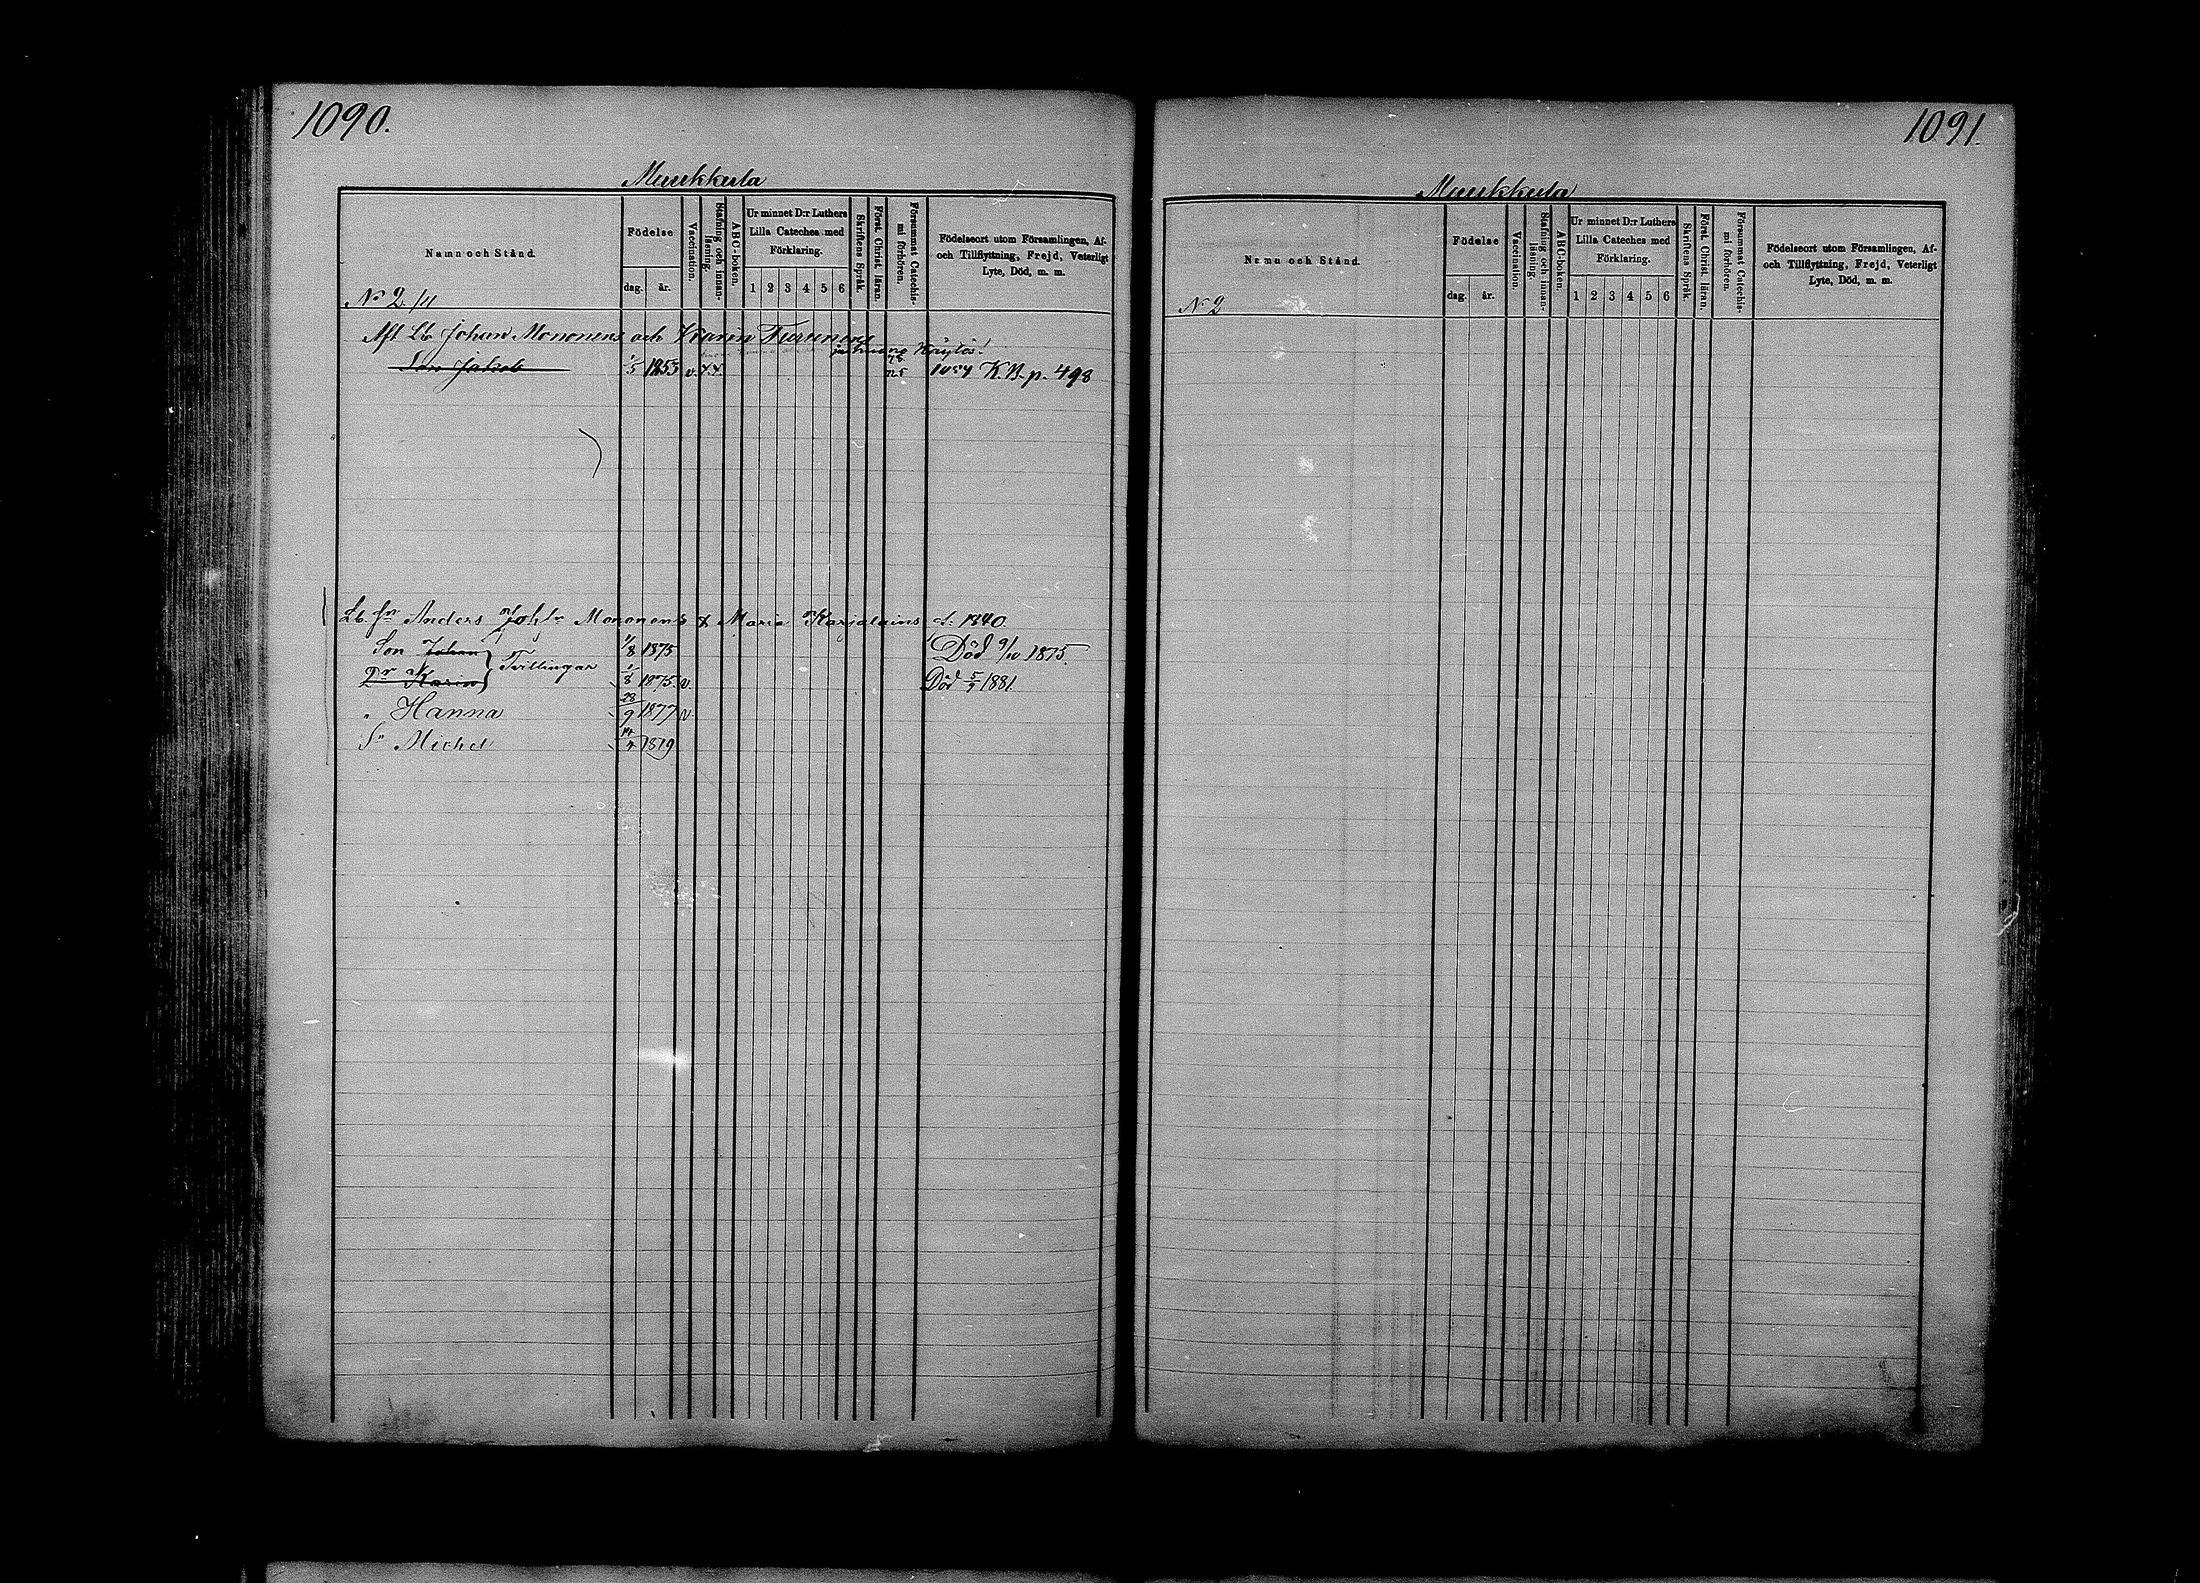 1090.
Muukkula
Namn och Stånd.
Födelse
dag. år.
Vaccination.
Stafning och innanläsning.
ABC-boken.
Ur minnet D:r Luthers Lilla Cateches med Förklaring.
1 2 3 4 5 6
Skriftens Språk.
Först. Christ. läran.
Försummat Catechismi förhören.
Födelseort utom Församlingen, Af- och Tillflyttning, Frejd, Veterligt Lyte, Död, m. m.
No 2. /4
Aft Lb Johan Mononens och Karin Turunens
Son Jakob 1/5 1853 v. K.B. p. 498
Lb. Sn Anders Mononens & Maria Karjalains f. 1840.
Son Johan } Tvillingar 1/8 1875 Död 9/10 1875.
Dr Karin } 1/8 1875. v. Död 5/7 1881.
" Hanna 23/9 1877 v.
Sn Michel 14/4 1879
1091.
Muukkula
Namn och Stånd.
Födelse
dag. år.
Vaccination.
Stafning och innanläsning.
ABC-boken.
Ur minnet D:r Luthers Lilla Cateches med Förklaring.
1 2 3 4 5 6
Skriftens Språk.
Först. Christ. läran.
Försummat Catechismi förhören.
Födelseort utom Församlingen, Af- och Tillflyttning, Frejd, Veterligt Lyte, Död, m. m.
No 2